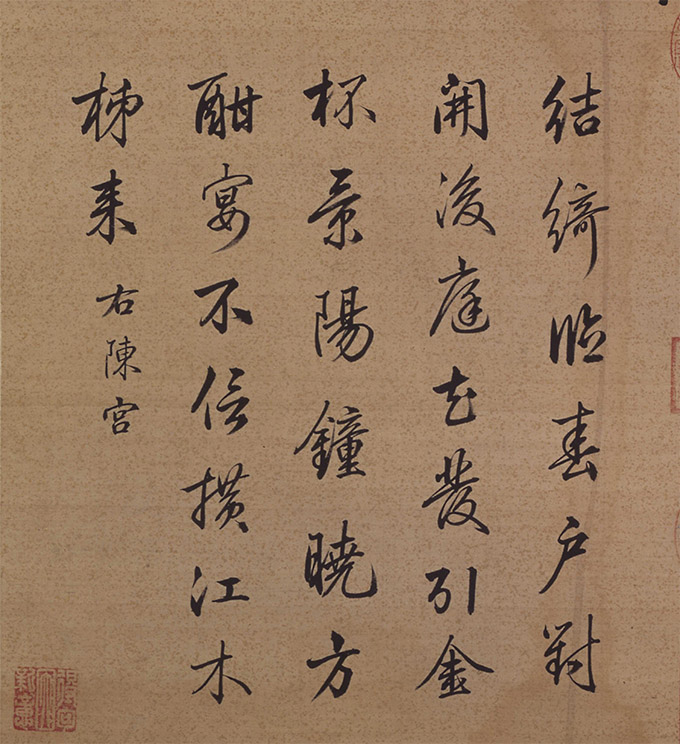 結綺臨春戶對
開後庭花發引金
杯景陽鐘曉方
酣宴不信橫江木
柹來
右陳宮